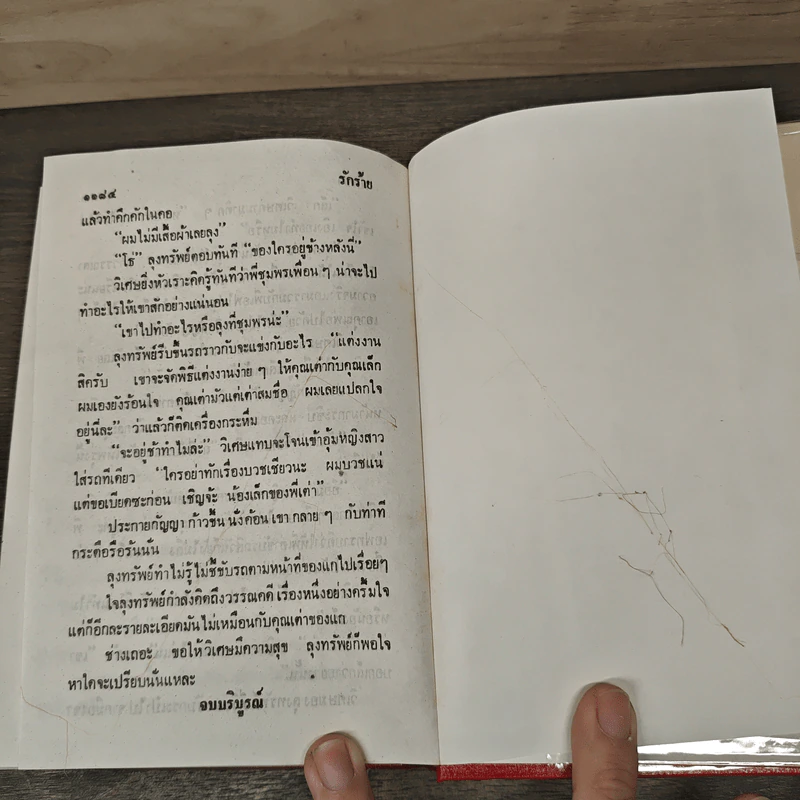 ๑๑๘๔ รักร้าย
แล้วทำคึกคักในคอ
“ผมไม่มีเสื้อผ้าเลยลุง”
“โธ่” ลุงทรัพย์ตอบทันที “ของใครอยู่ข้างหลังนี่”
วิเศษยิ่งหัวเราะคิดรู้ทันทีว่าพี่ชุมพรเพื่อน ๆ น่าจะไป
ทำอะไรให้เขาสักอย่างแน่นอน
“เขาไปทำอะไรหรือลุงที่ชุมพรน่ะ”
ลุงทรัพย์รีบขึ้นรถราวกับจะแข่งกับอะไร “แต่งงาน
สิครับ เขาจะจัดพิธีแต่งงานง่าย ๆ ให้คุณเต่ากับคุณเล็ก
ผมเองยังร้อนใจ คุณเต่ามัวแต่เต่าสมชื่อ ผมเลยแปลกใจ
อยู่นี่ละ” ว่าแล้วก็ติดเครื่องกระหึ่ม
“จะอยู่ช้าทำไมล่ะ” วิเศษแทบจะโจนเข้าอุ้มหญิงสาว
ใส่รถทีเดียว “ใครอย่าทักเรื่องบวชเชียวนะ ผมบวชแน่
แต่ขอเบียดซะก่อน เชิญจ้ะ น้องเล็กของพี่เต่า”
ประกายกัญญา ก้าวขึ้น นั่งค้อน เขา กลาย ๆ กับท่าที
กระตือรือร้นนั่น
ลุงทรัพย์ทำไม่รู้ไม่ชี้ขับรถตามหน้าที่ของแกไปเรื่อยๆ
ใจลุงทรัพย์กำลังคิดถึงวรรณคดี เรื่องหนึ่งอย่างครึ้มใจ
แต่ก็อีกละรายละเอียดมันไม่เหมือนกับคุณเต่าของแก
ช่างเถอะ ขอให้วิเศษมีความสุข ลุงทรัพย์ก็พอใจ
หาใดจะเปรียบนั่นแหละ
จบบริบูรณ์